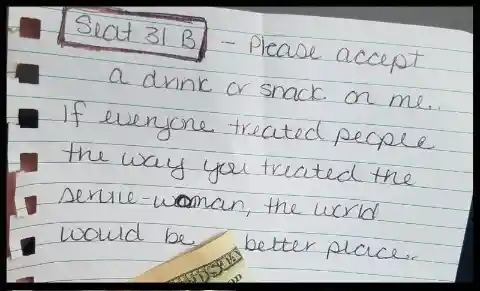 Seat 31 B - Please accept
a drink or snack on me..
If everyone treated people
the way you treated the
service-woman, the world
would be better place..